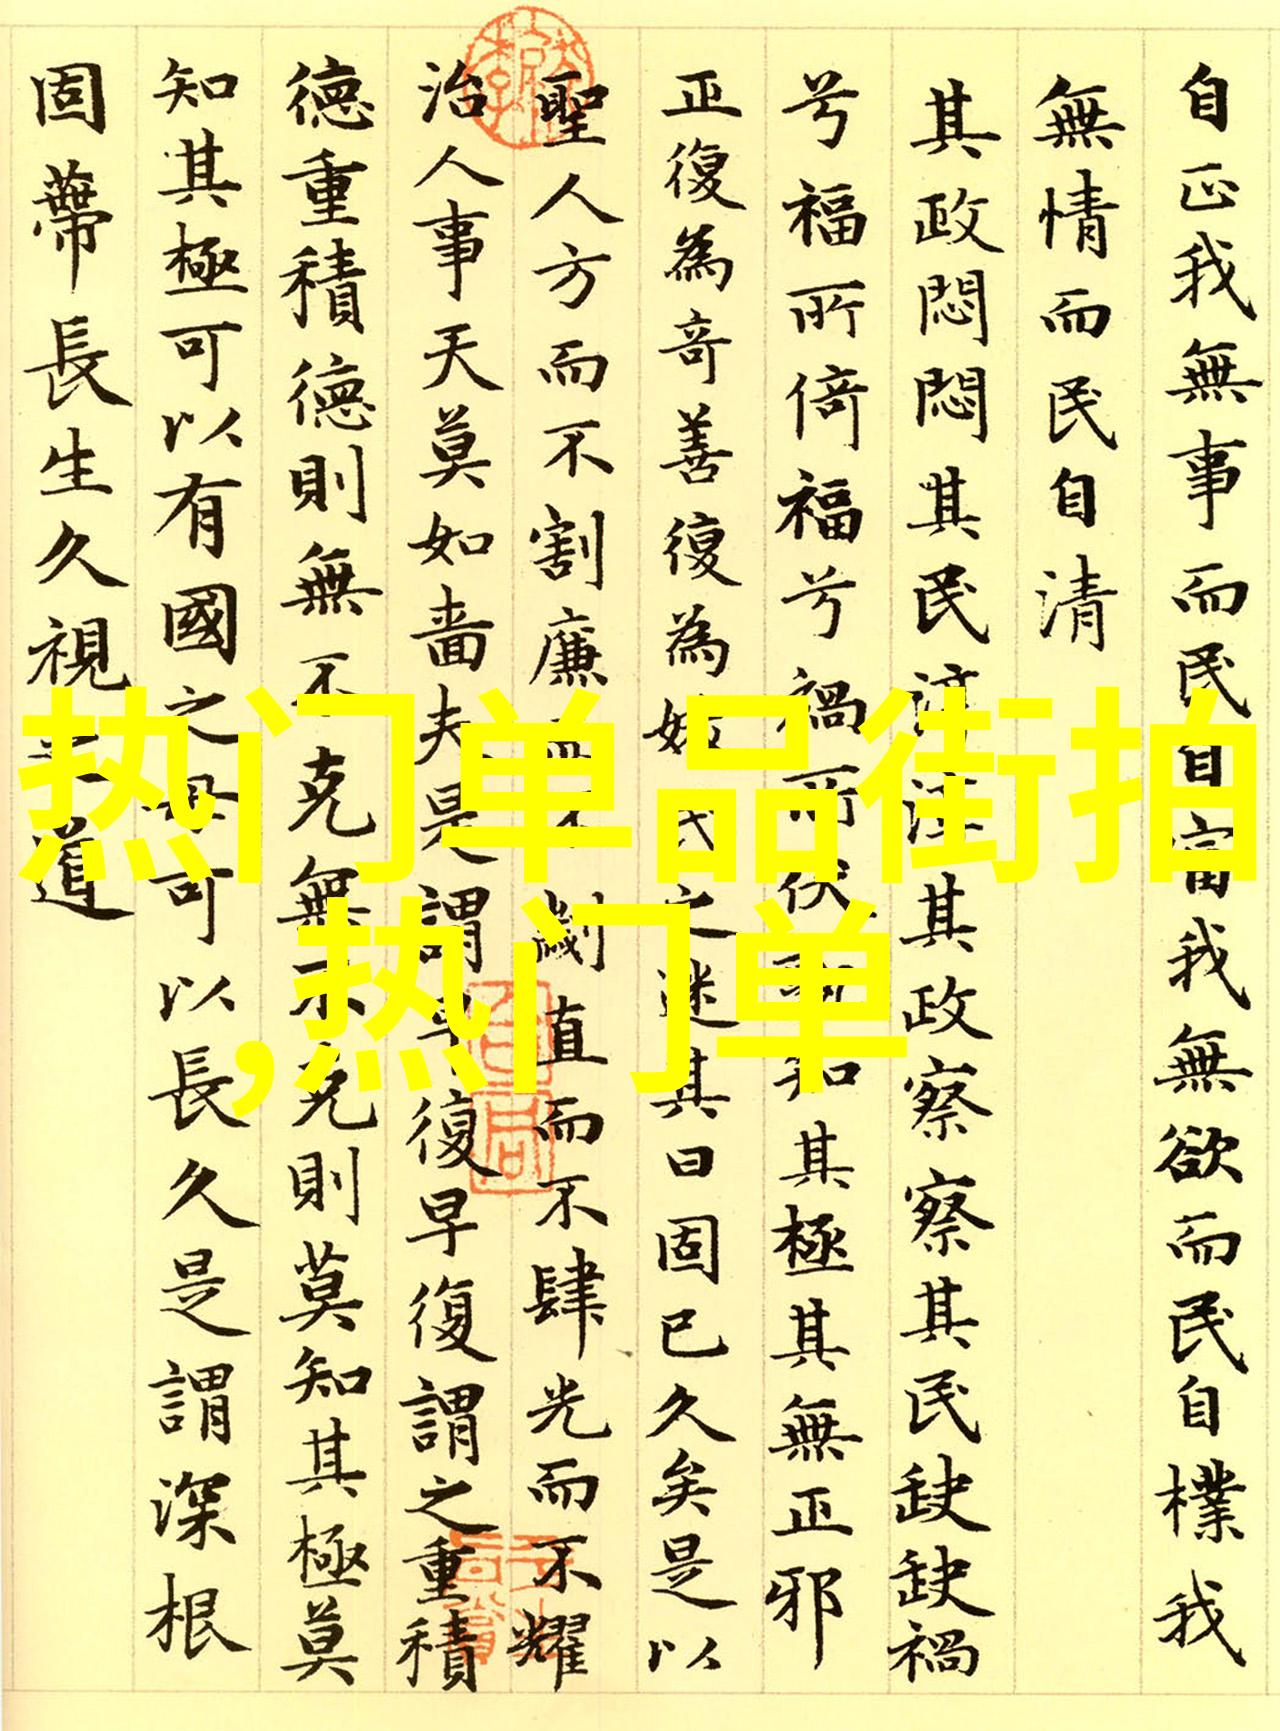 自正我無事而民自富我無欲而民自樸我
無情而民自清
其政悶悶其民諄諄其政察察其民缺缺禍
兮福所倚福兮禍所伏孰知其極其無正邪
正復為奇善復為妖民之迷其日固已久矣是以
聖人方而不割廉而不劌直而不肆光而不耀
治人事天莫如嗇夫是謂早復早復謂之重積
德重積德則無不克無不克則莫知其極莫
知其極可以有國之母可以長久是謂深根
固蔕長生久視之道
热门单品街拍
,热门单